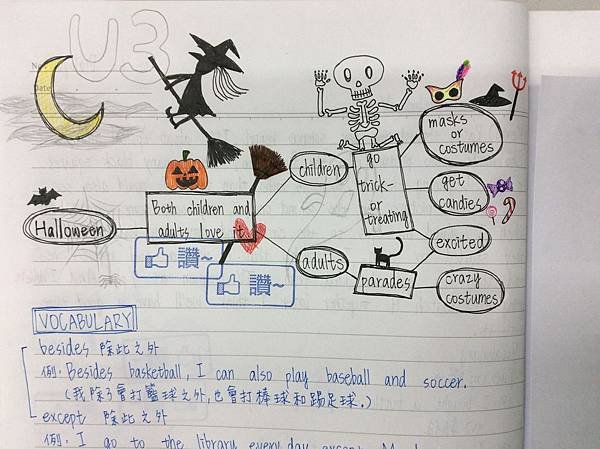 U3
No.
Date
Halloween
Both children and
adults love it.
讚~
讚~
children
adults
go
trick-
or
treating
parades
masks
or
costumes
get
candies
excited
crazy
costumes
VOCABULARY
besides 除此之外
例. Besides basketball, I can also play baseball and soccer.
(我除了會打籃球之外,也會打棒球和踢足球.)
except 除此之外
例. I go to the library every day except